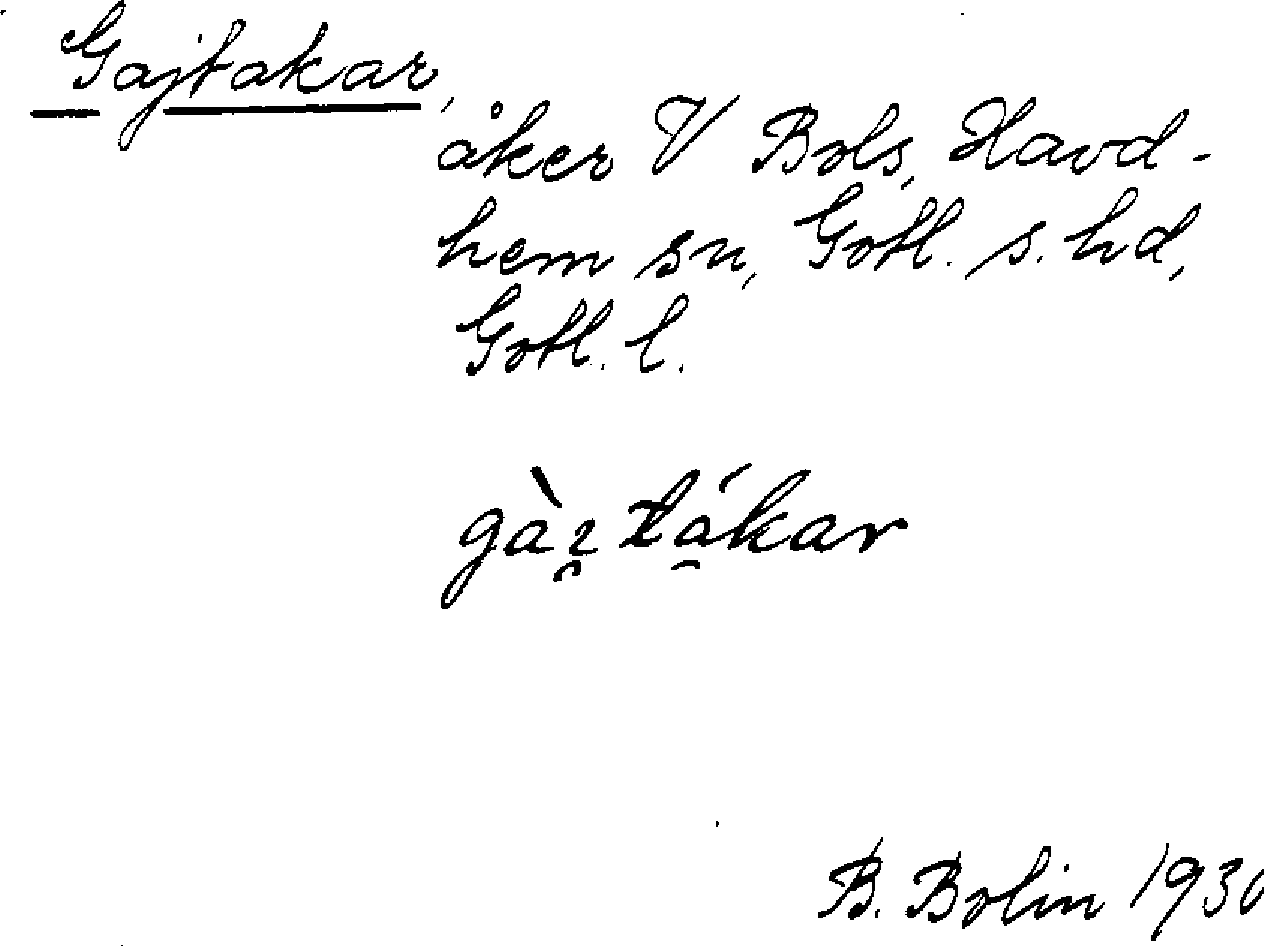 Gajtakar,
åker V Bols, Havd-
hem sn, Gotl. s. hd,
Gotl. l.
B. Bolin 1930